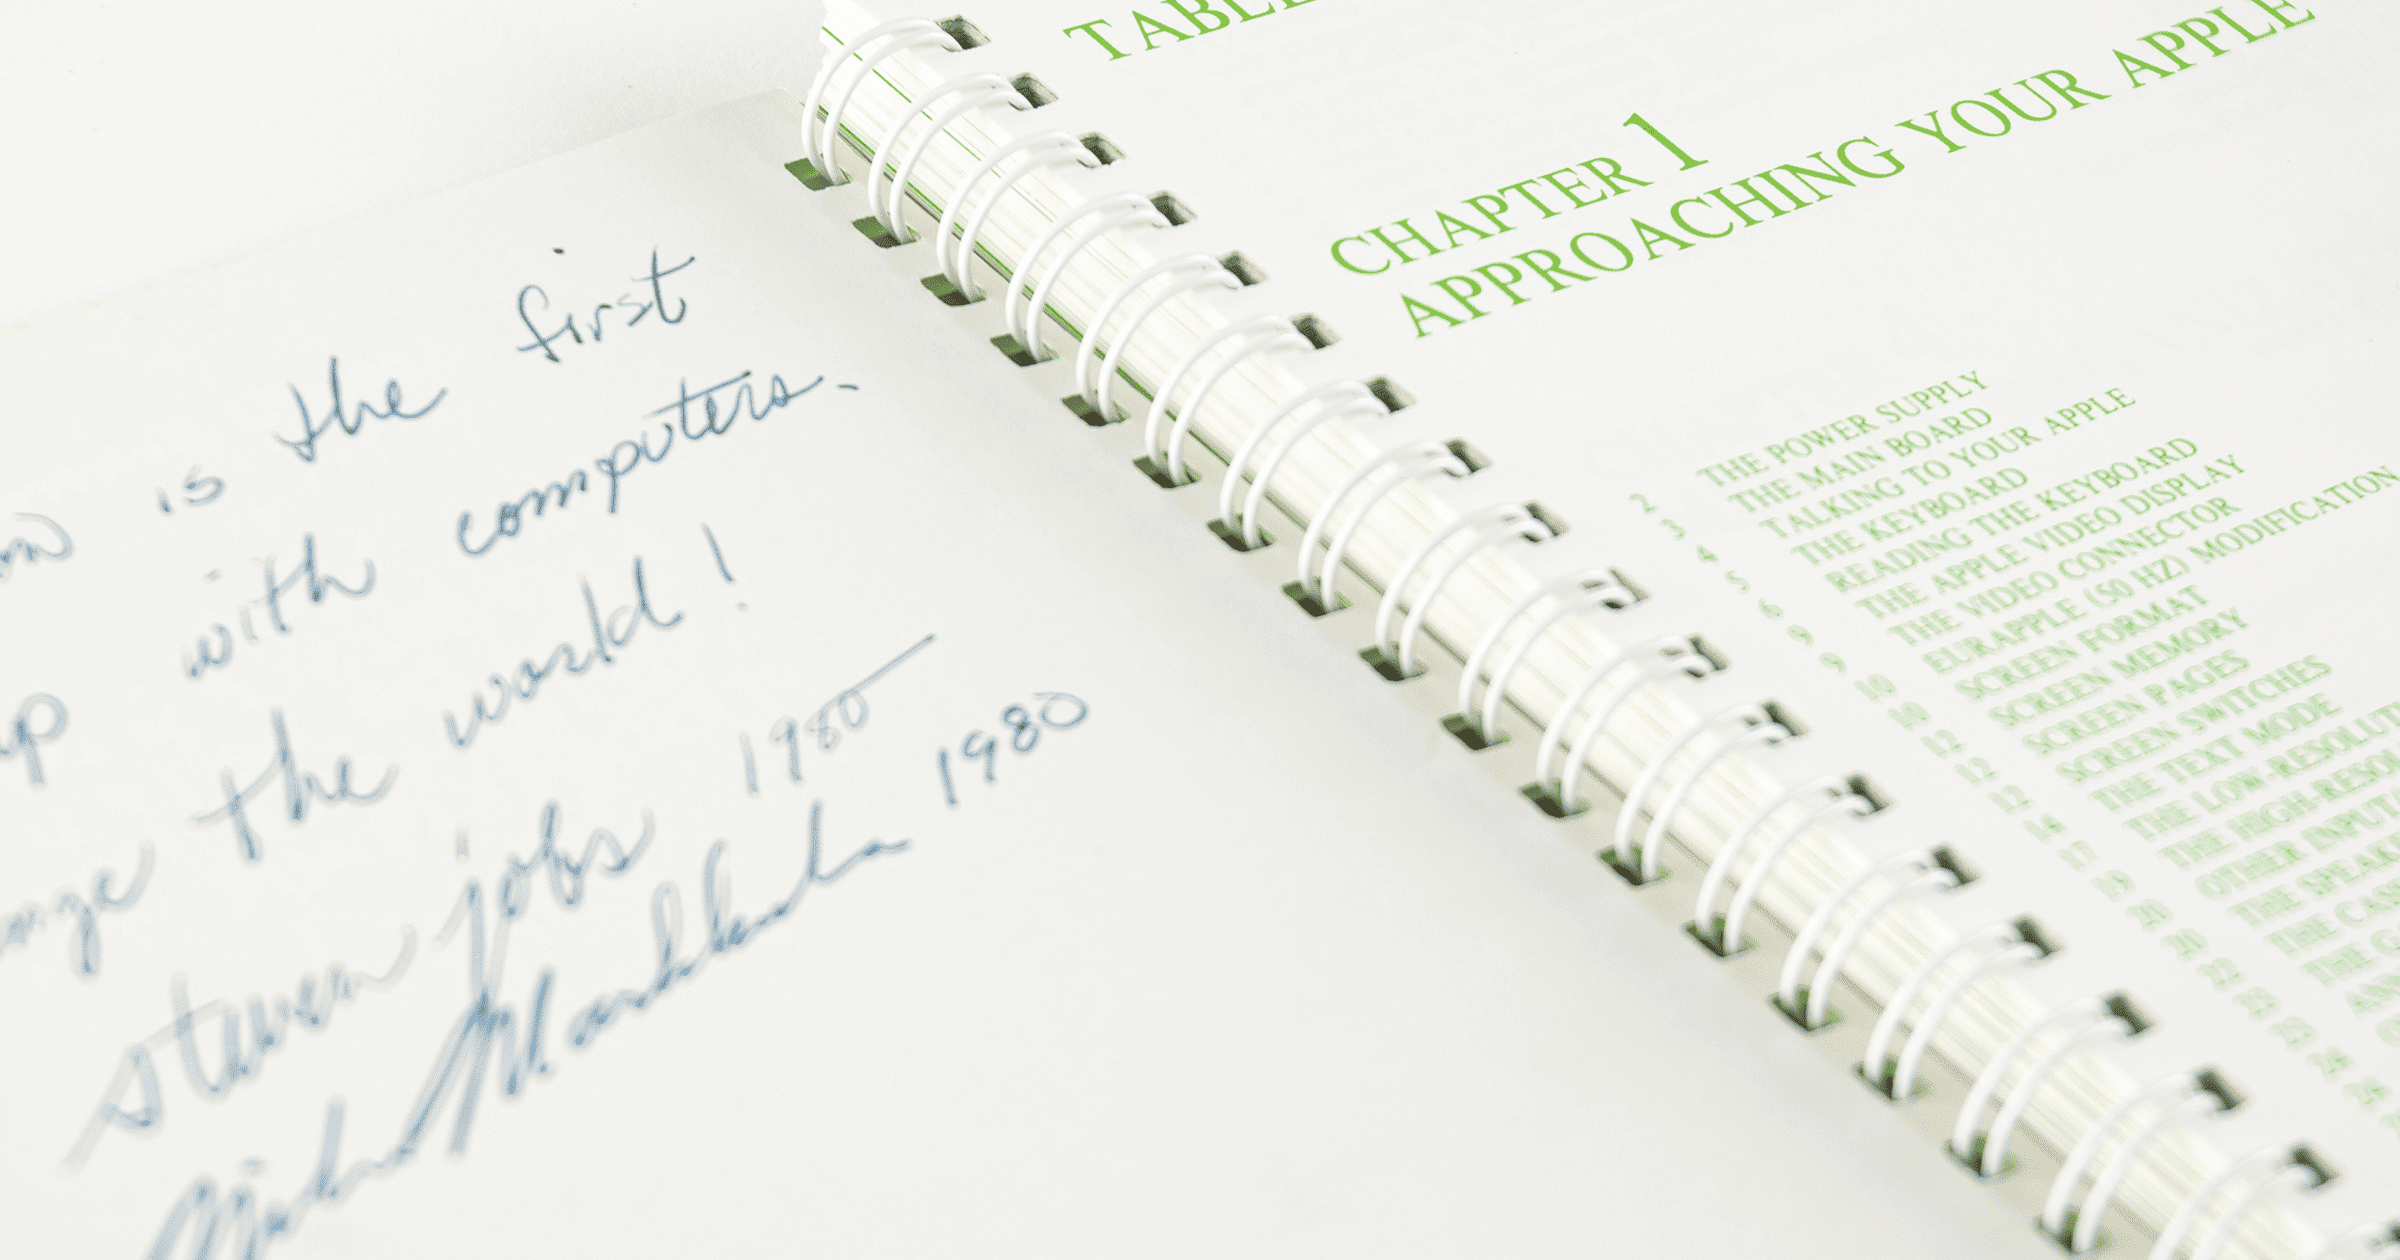 is the first
with computers.
the world!
steven jobs 1980
Markkula 1980
TABLE
CHAPTER 1
APPROACHING YOUR APPLE
2 THE POWER SUPPLY
3 THE MAIN BOARD
4 TALKING TO YOUR APPLE
5 THE KEYBOARD
6 READING THE KEYBOARD
9 THE APPLE VIDEO DISPLAY
9 THE VIDEO CONNECTOR
10 EURAPPLE (50 HZ) MODIFICATION
10 SCREEN FORMAT
12 SCREEN MEMORY
12 SCREEN PAGES
12 SCREEN SWITCHES
14 THE TEXT MODE
17 THE LOW-RESOLUT
19 THE HIGH-RESOL
20 OTHER INPUT
20 THE SPEAK
22 THE CASS
23 THE G
23 ANN
24